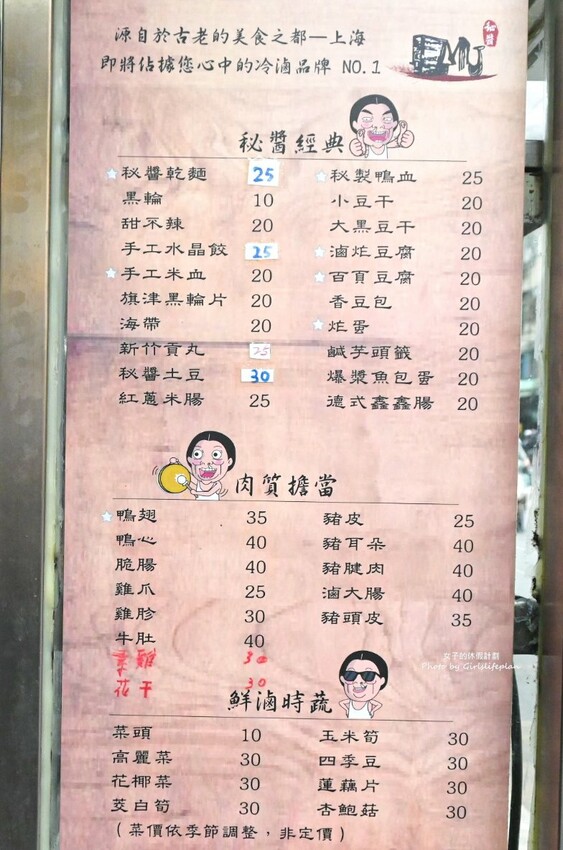 源自於古老的美食之都—上海
即將佔據您心中的冷滷品牌 NO.1
秘醬
EMU
秘醬經典
秘醬乾麵 25
黑輪 10
甜不辣 20
手工水晶餃 25
手工米血 20
旗津黑輪片 20
海帶 20
新竹貢丸 25
秘醬土豆 30
紅蔥米腸 25
秘製鴨血 25
小豆干 20
大黑豆干 20
滷炸豆腐 20
百頁豆腐 20
香豆包 20
炸蛋 20
鹹芋頭籤 20
爆漿魚包蛋 20
德式鑫鑫腸 20
肉質擔當
鴨翅 35
鴨心 40
脆腸 40
雞爪 25
雞胗 30
牛肚 40
素雞 30
花干 30
豬皮 25
豬耳朵 40
豬腱肉 40
滷大腸 40
豬頭皮 35
女子的休假計劃
Photo by Girlslifeplan
鮮滷時蔬
菜頭 10
高麗菜 30
花椰菜 30
茭白筍 30
玉米筍 30
四季豆 30
蓮藕片 30
杏鮑菇 30
（菜價依季節調整，非定價）